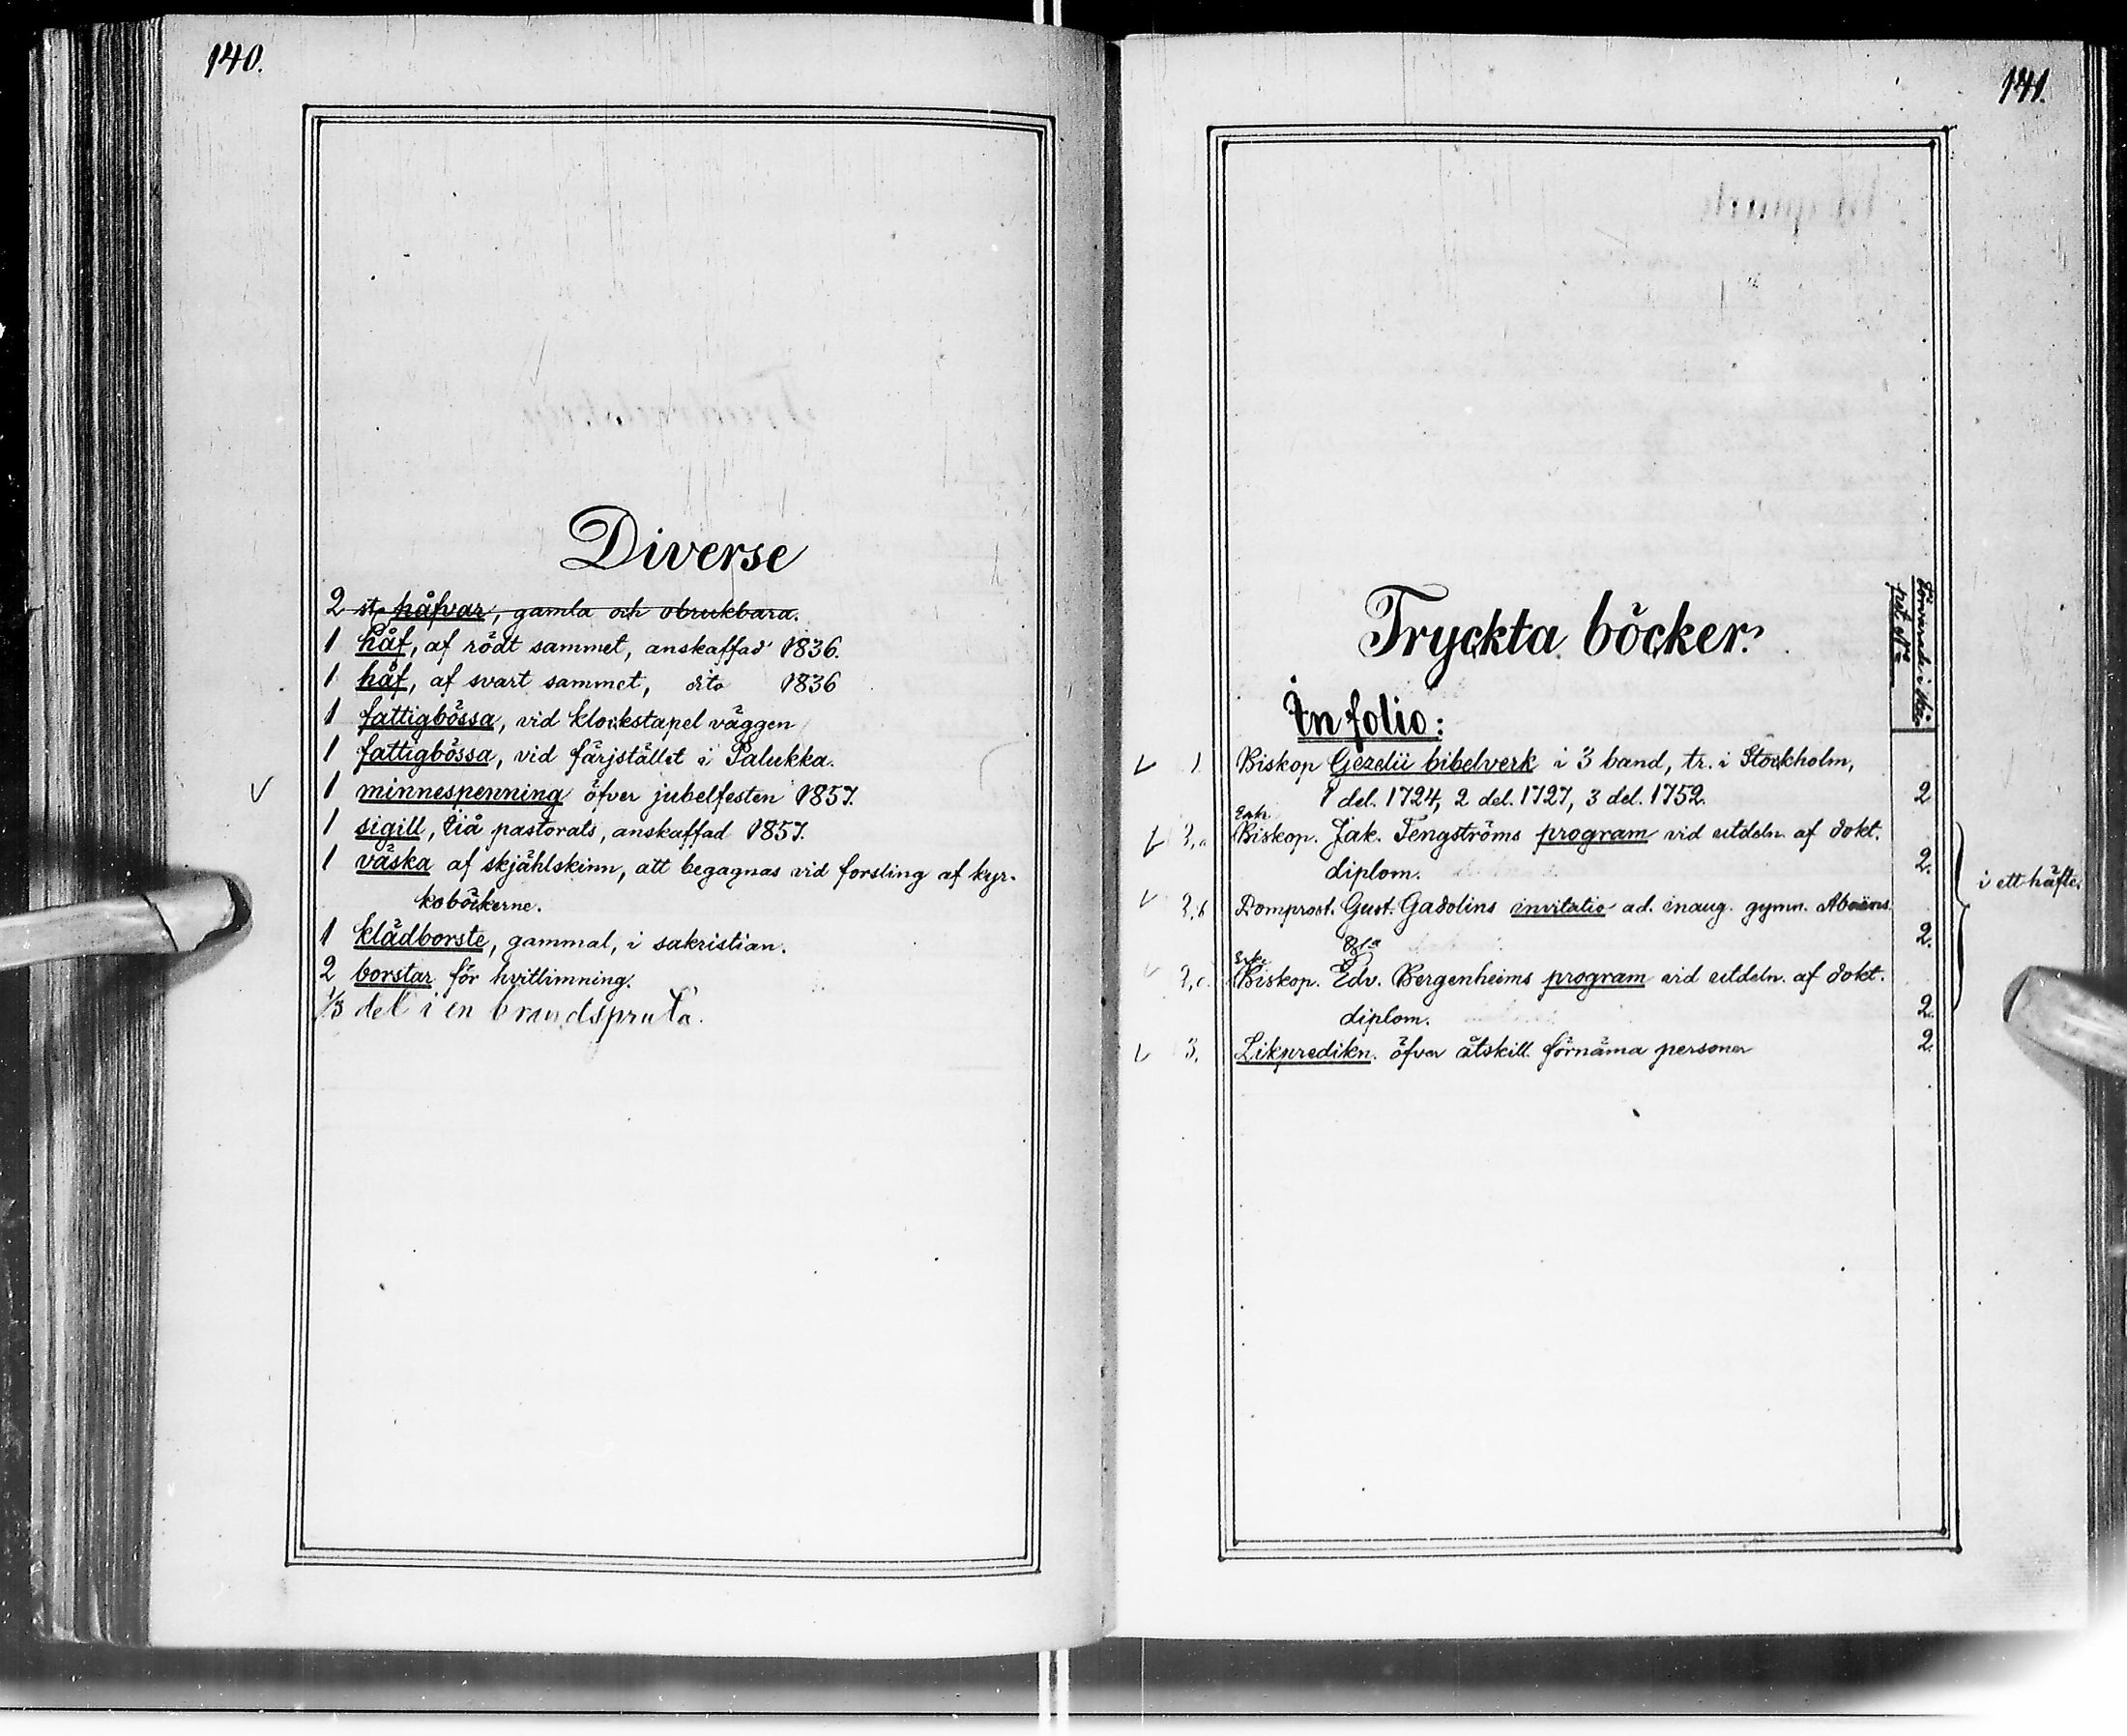 140.
Diverse
2 st. håfvar, gamla och obrukbara.
1 håf, af rödt sammet, anskaffad 1836.
1 håf, af svart sammet, dito 1836
1 fattigbössa, vid klockstapel väggen
1 fattigbössa, vid färjstället i Palukka.
1 minnespenning öfver jubelfesten 1857.
1 sigill, pastorats, anskaffad 1857.
1 väska af skjählskinn, att begagnas vid forsling af kyr-
koböckerne.
1 klädborste, gammal, i sakristian.
2 borstar för hvitlimning.
1/3 del i en brandspruta.
141.
Tryckta böcker.
In folio:
1. Biskop Gezelii bibelverk i 3 band, tr. i Stockholm,
1 del. 1724, 2 del. 1727, 3 del. 1752. 2
2,a Biskop. Jak. Tengströms program vid utdeln. af dokt.
diplom. 2.
i ett häfte.
2,b Domprost. Gust. Gadolins invitatio ad. inaug. gymn. Aboëns.
2.
2,c. Biskop. Edv. Bergenheims program vid utdeln. af dokt.
diplom. 2.
3. Likpredikn. öfver åtskill. förnäma personer 2.